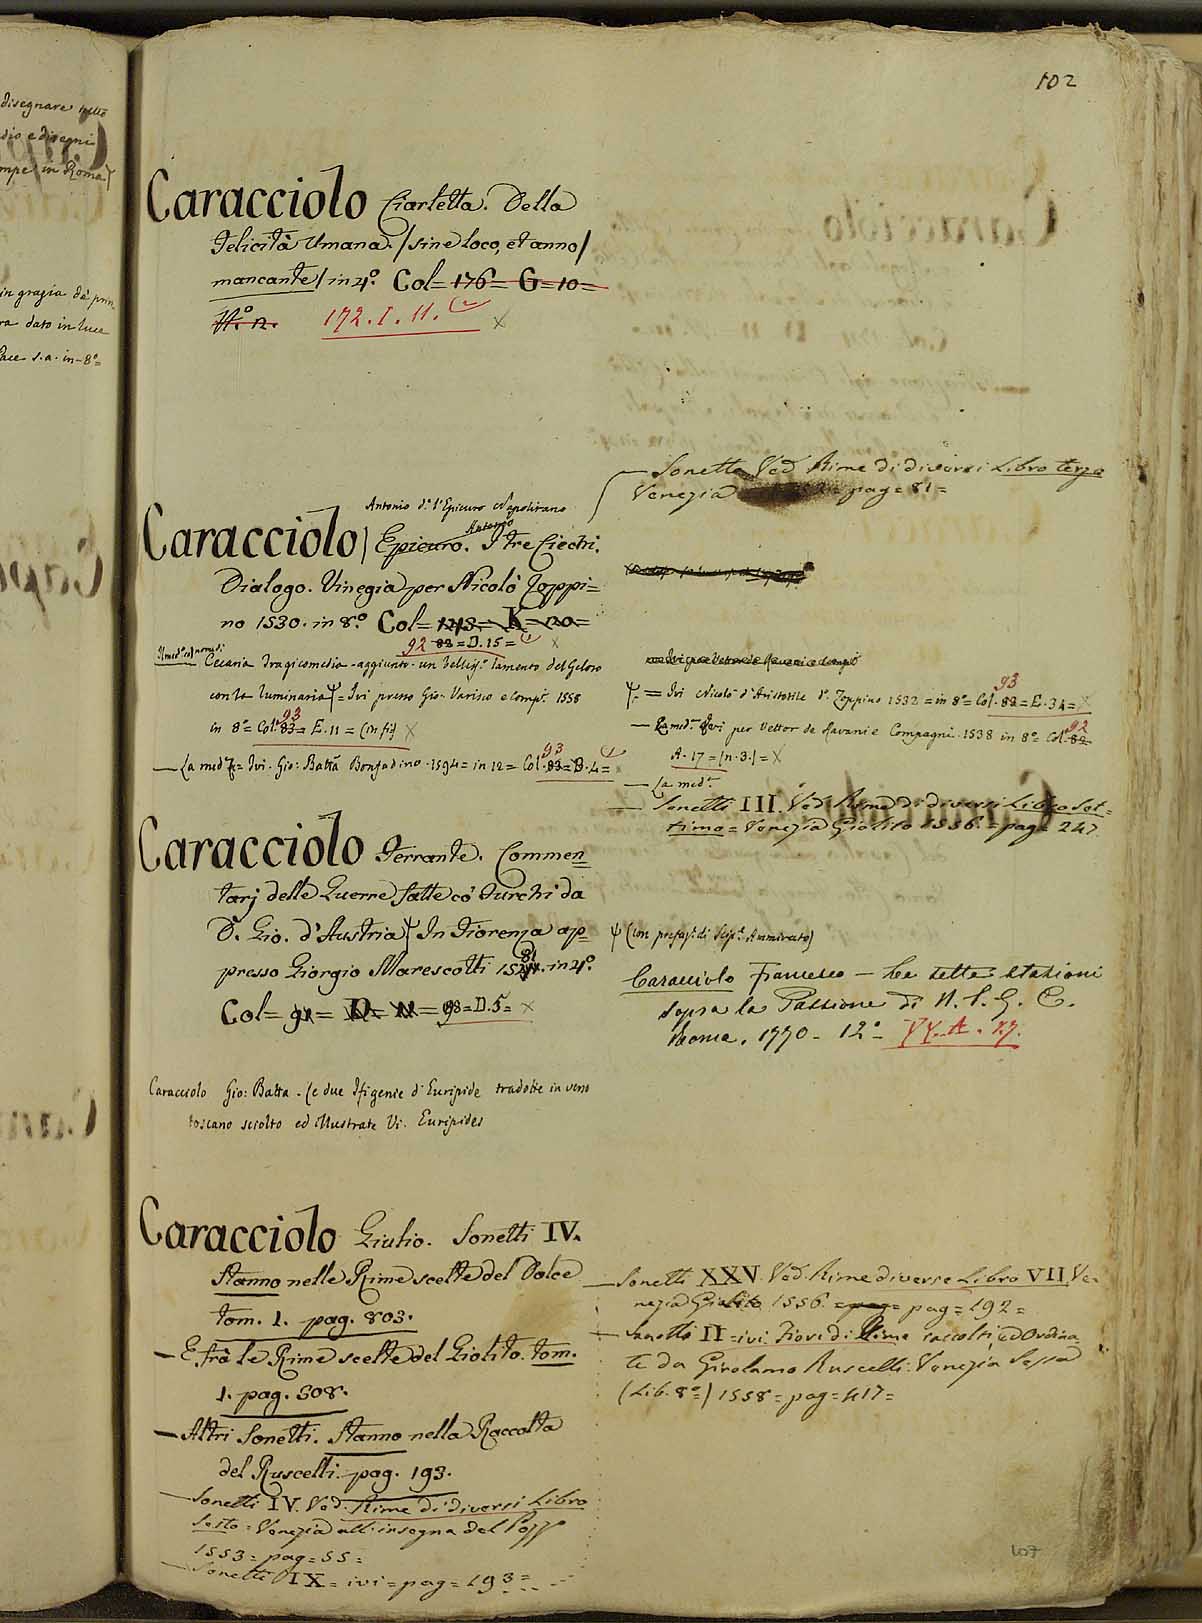 102
disegnare nello
dio e disegni
mpe in Roma
in grazia de' prin
ra dato in luce
Pace s.a. in-8°=
Caracciolo Ciarletta. Della
Felicità Umana. / sine loco, et anno /
mancante / in 4.° Col= 176= G=10=
N.° 12. 172. I. 11.
Antonio d.° l'Epicuro Napolitano
Antonio
Caracciolo / Epicuro. I tre Ciechi.
Dialogo. Vinegia per Nicolò Zoppi=
no 1530. in 8.° Col= K=20=
92 83=D.15=
Cecaria Tragicomedia - aggiunto - un belliss.° lamento del Geloso
con la luminaria Ψ = Ivi presso Gio. Varisco e Comp.i 1558
93
in 8°= Col.a 83= E.11 = (in fi)
— La med.a = Ivi. Gio: Batta Bonfadino. 1594 = in 12 = Col. 83=B.4=
93
Caracciolo Ferrante. Commen
tarj delle Guerre fatte co' Turchi da
D. Gio. d'Austria Ψ In Fiorenza ap=
81
presso Giorgio Marescotti 15 in 4.°
Col= 98=D.5=
Caracciolo Gio: Batta - Le due Ifigenie d'Euripide tradotte in verso
toscano sciolto ed illustrate Vi. Euripides
Caracciolo Giulio. Sonetti IV.
Stanno nelle Rime scelte del Dolce
tom. 1. pag. 803.
— E frà le Rime scelte del Giolito. tom.
1. pag. 308.
— Altri Sonetti. Stanno nella Raccolta
del Ruscelli. pag. 193.
— Sonetti IV. Ved. Rime di diversi Libro
Sesto = Venezia all'insegna del Pozzo
1553 = pag = 55 =
— Sonetti IX = ivi = pag = 193 =
— Sonetto Ved. Rime di diversi Libro terzo
Venezia pag = 81 =
93
Ψ = Ivi Nicolò d'Aristotile d.° Zoppino 1532 = in 8°= Col. 83= E.34=
— La med.a Ivi per Vettor de Ravani e Compagni. 1538 in 8°= Col. 83
92
A. 17 = (n. 3.) =
— La med.a
— Sonetti III. Ved. Rime di diversi Libro Set=
timo = Venezia Giolito 1556. = pag = 247
Ψ (con prefaz.e di Scip.e Ammirato)
Caracciolo Francesco — Le sette stazioni
sopra la Passione di N. S. G. C.
Roma. 1770 - 12°-
— Sonetti XXV. Ved. Rime diverse Libro VII Ve=
nezia Giolito 1556. = pag = 192 =
— Sonetti II = ivi. Fiori di Rime raccolti ed Ordina
te da Girolamo Ruscelli: Venezia Sessa
(Lib. 8°=) 1558 = pag = 417 =
107